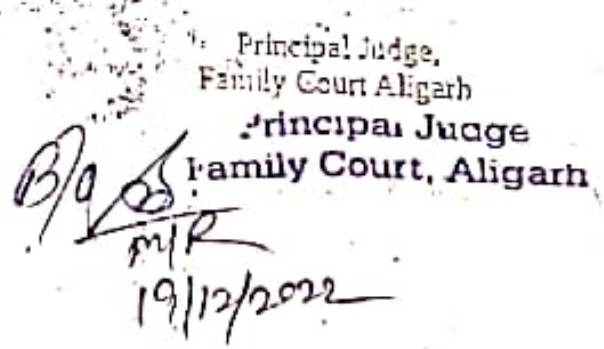 Principal Judge,
Family Court Aligarh
Principal Judge
Family Court, Aligarh
M/R
19/12/2022